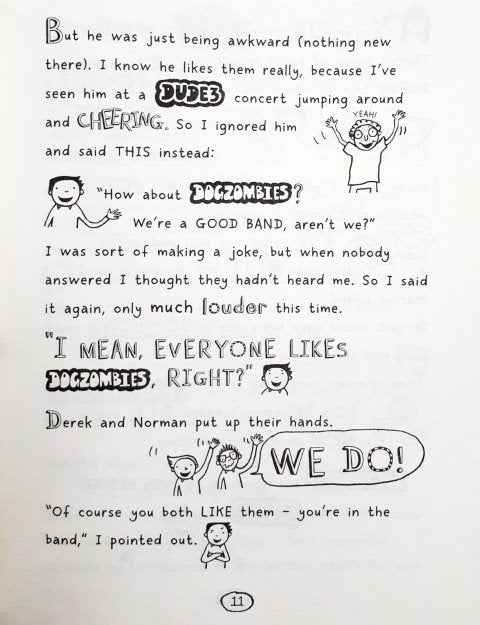 But he was just being awkward (nothing new
there). I know he likes them really, because I've
seen him at a DUDE3 concert jumping around
and CHEERING. So I ignored him
YEAH!
and said THIS instead:
"How about DOGZOMBIES?
We're a GOOD BAND, aren't we?"
I was sort of making a joke, but when nobody
answered I thought they hadn't heard me. So I said
it again, only much louder this time.
"I MEAN, EVERYONE LIKES
DOGZOMBIES, RIGHT?"
Derek and Norman put up their hands.
WE DO!
"Of course you both LIKE them – you're in the
band," I pointed out.
11